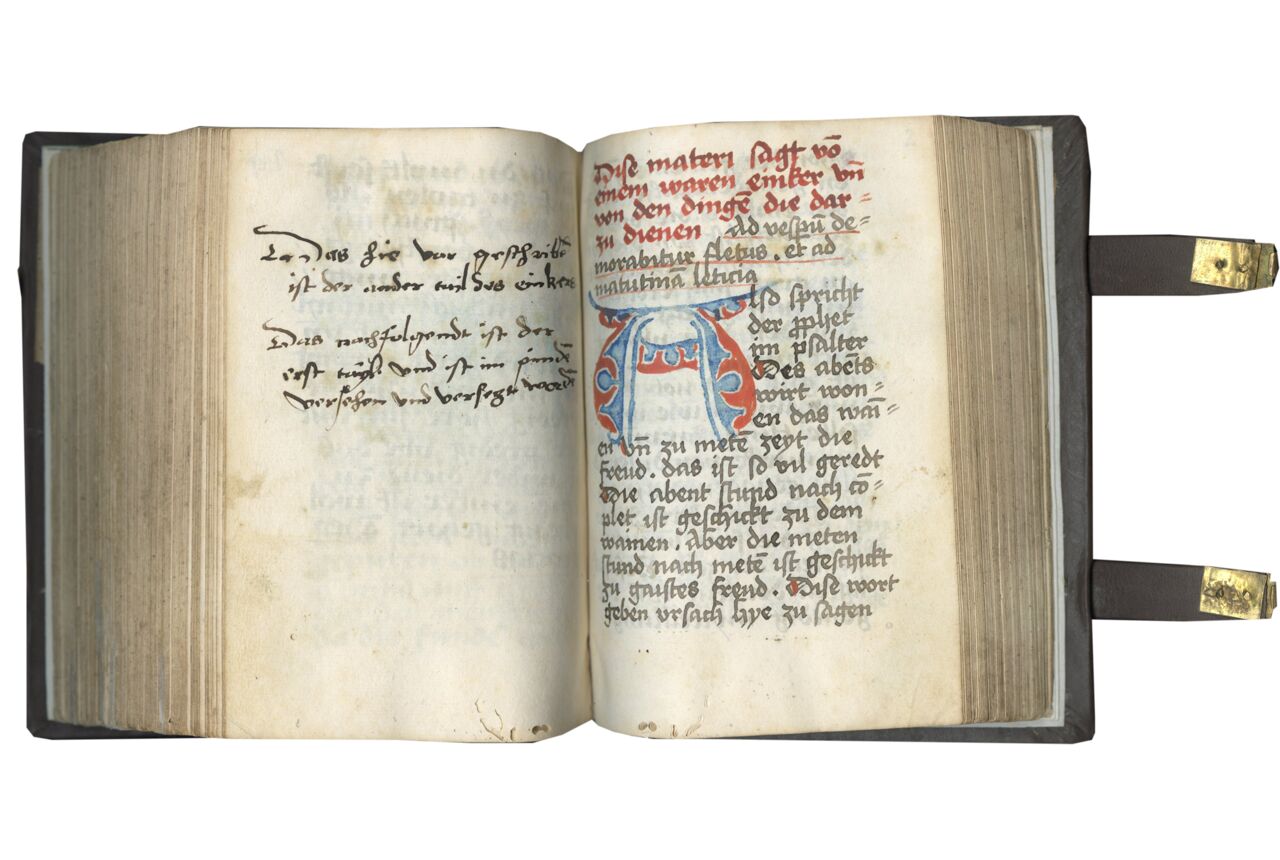 Das hie vor geschribn̄
ist der ander tail des einkers
Das nachfolgendt ist der
erst tayl vnd ist im pindē
versehen vnd versezt wordē
Dise materi sagt vō
einem waren einker vn̄
von den dingē die dar=
zu dienen Ad vesꝑū de=
morabitur fletus . et ad
matutinā leticia
Alſo ſpricht
der ꝓphet
im pſalter
Des abēts
wirt won=
en das wai͞=
en vn̄ zu metē zeyt die
freud . das iſt ſo vil geredt
Die abent ſtund nach cō=
plet iſt geſchickt zu dem
wainen . Aber die meten
ſtund nach metē iſt geſchickt
zu gaiſtes freud . Diſe wort
geben vrſach hye zu ſagen